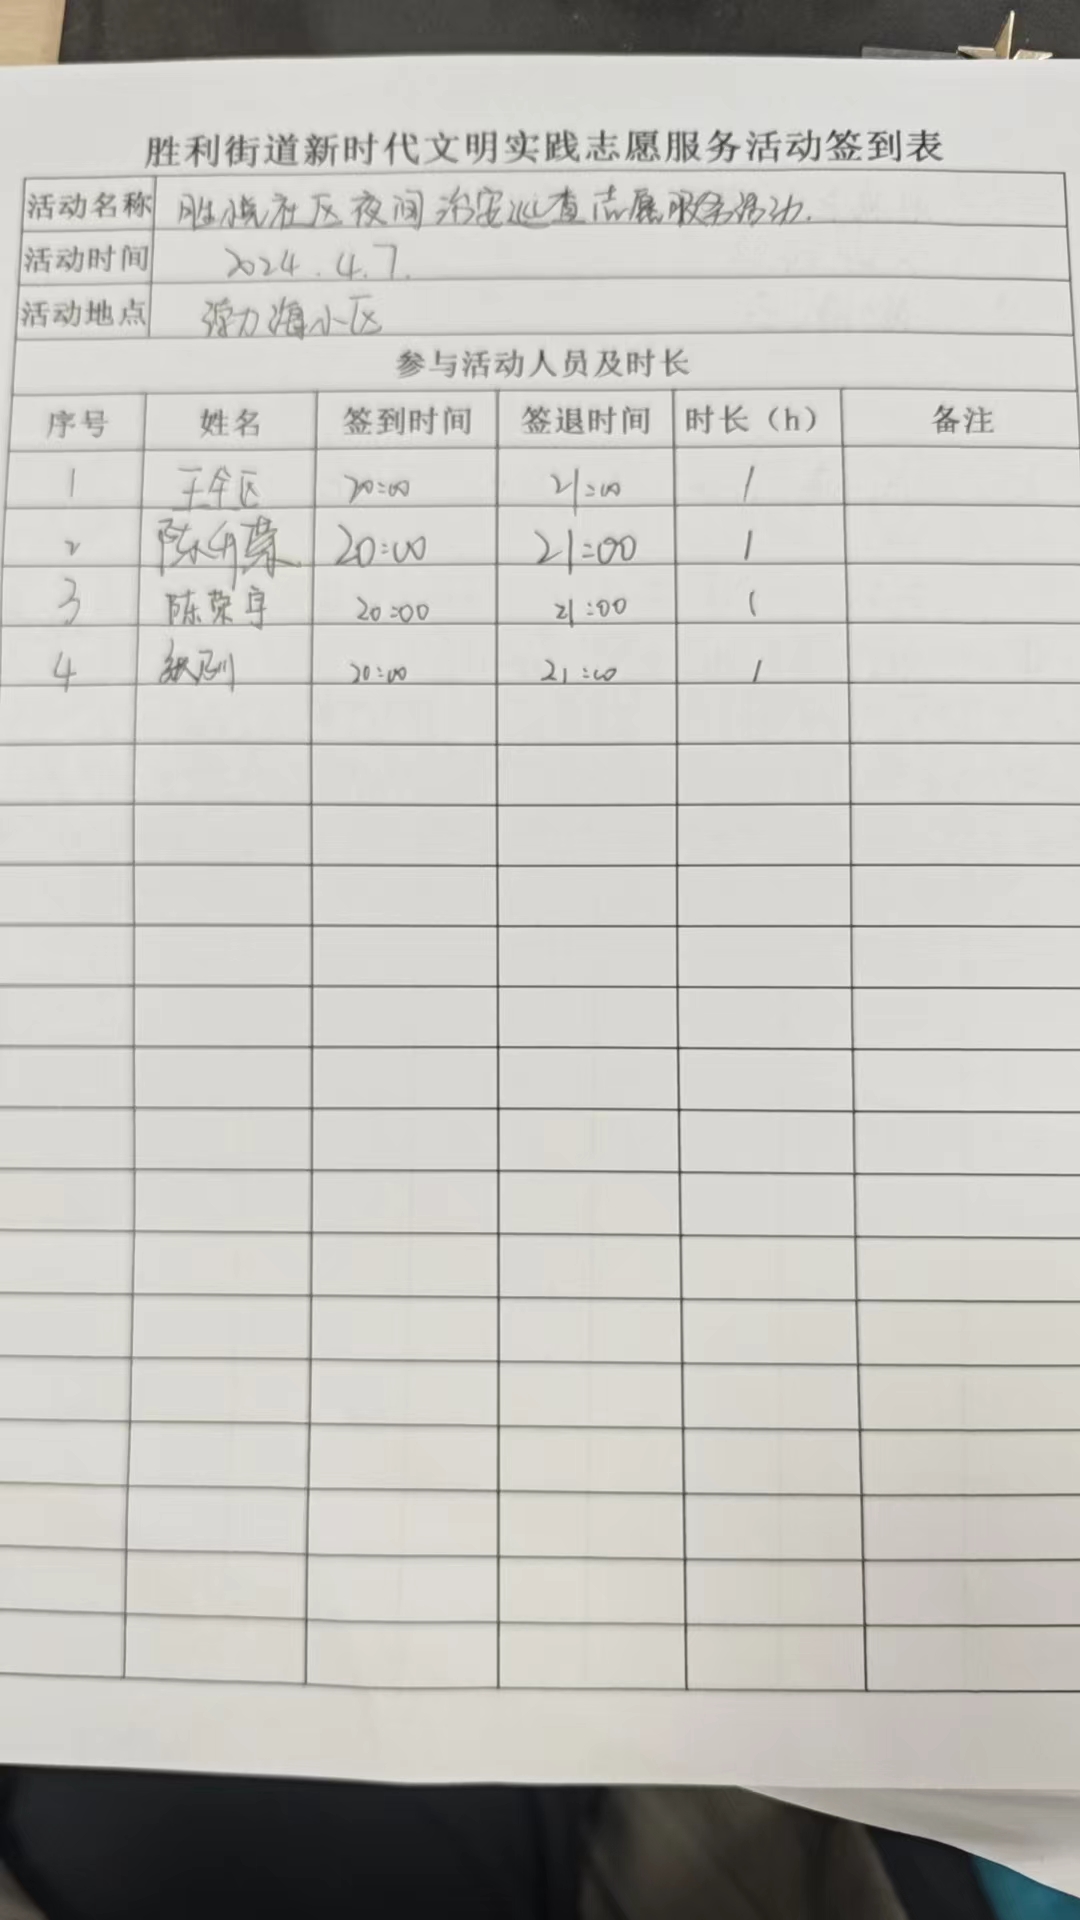 胜利街道新时代文明实践志愿服务活动签到表
活动名称 社区夜间治安巡查志愿服务活动.
活动时间 2024.4.7.
活动地点 海小区
参与活动人员及时长
序号 姓名 签到时间 签退时间 时长（h） 备注
1 20:00 21:00 1
2 陈 荣 20:00 21:00 1
3 陈荣宇 20:00 21:00 1
4 20:00 21:00 1